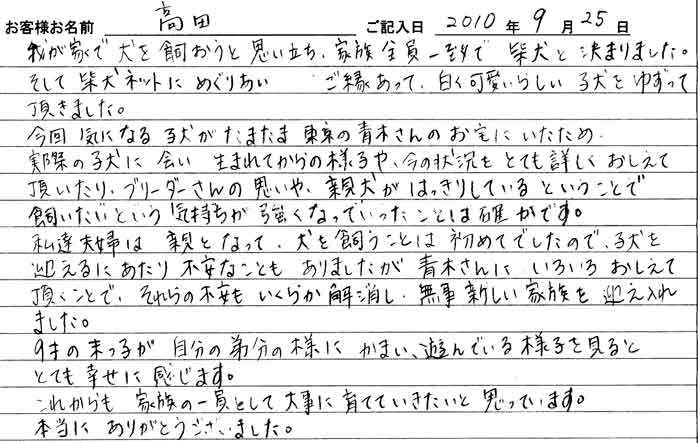 お客様お名前 高田 ご記入日 2010 年 9 月 25 日
我が家で犬を飼おうと思い立ち、家族全員一致で 柴犬と決まりました。
そして柴犬ネットにめぐりあい ご縁あって、白く可愛いらしい子犬をゆずって
頂きました。
今回気になる子犬がたまたま東京の青木さんのお宅にいたため、
実際の子犬に会い 生まれてからの様子や、今の状況をとても詳しくおしえて
頂いたり、ブリーダーさんの思いや、親犬がはっきりしているということで
飼いたいという気持ちが強くなっていったことは確かです。
私達夫婦は 親となって、犬を飼うことは初めてでしたので、子犬を
迎えるにあたり不安なこともありましたが 青木さんにいろいろおしえて
頂くことで、それらの不安もいくらか解消し、無事新しい家族を迎え入れ
ました。
9才の末っ子が 自分の弟分の様に かまい、遊んでいる様子を見ると
とても幸せに感じます。
これからも 家族の一員として大事に育てていきたいと思っています。
本当にありがとうございました。